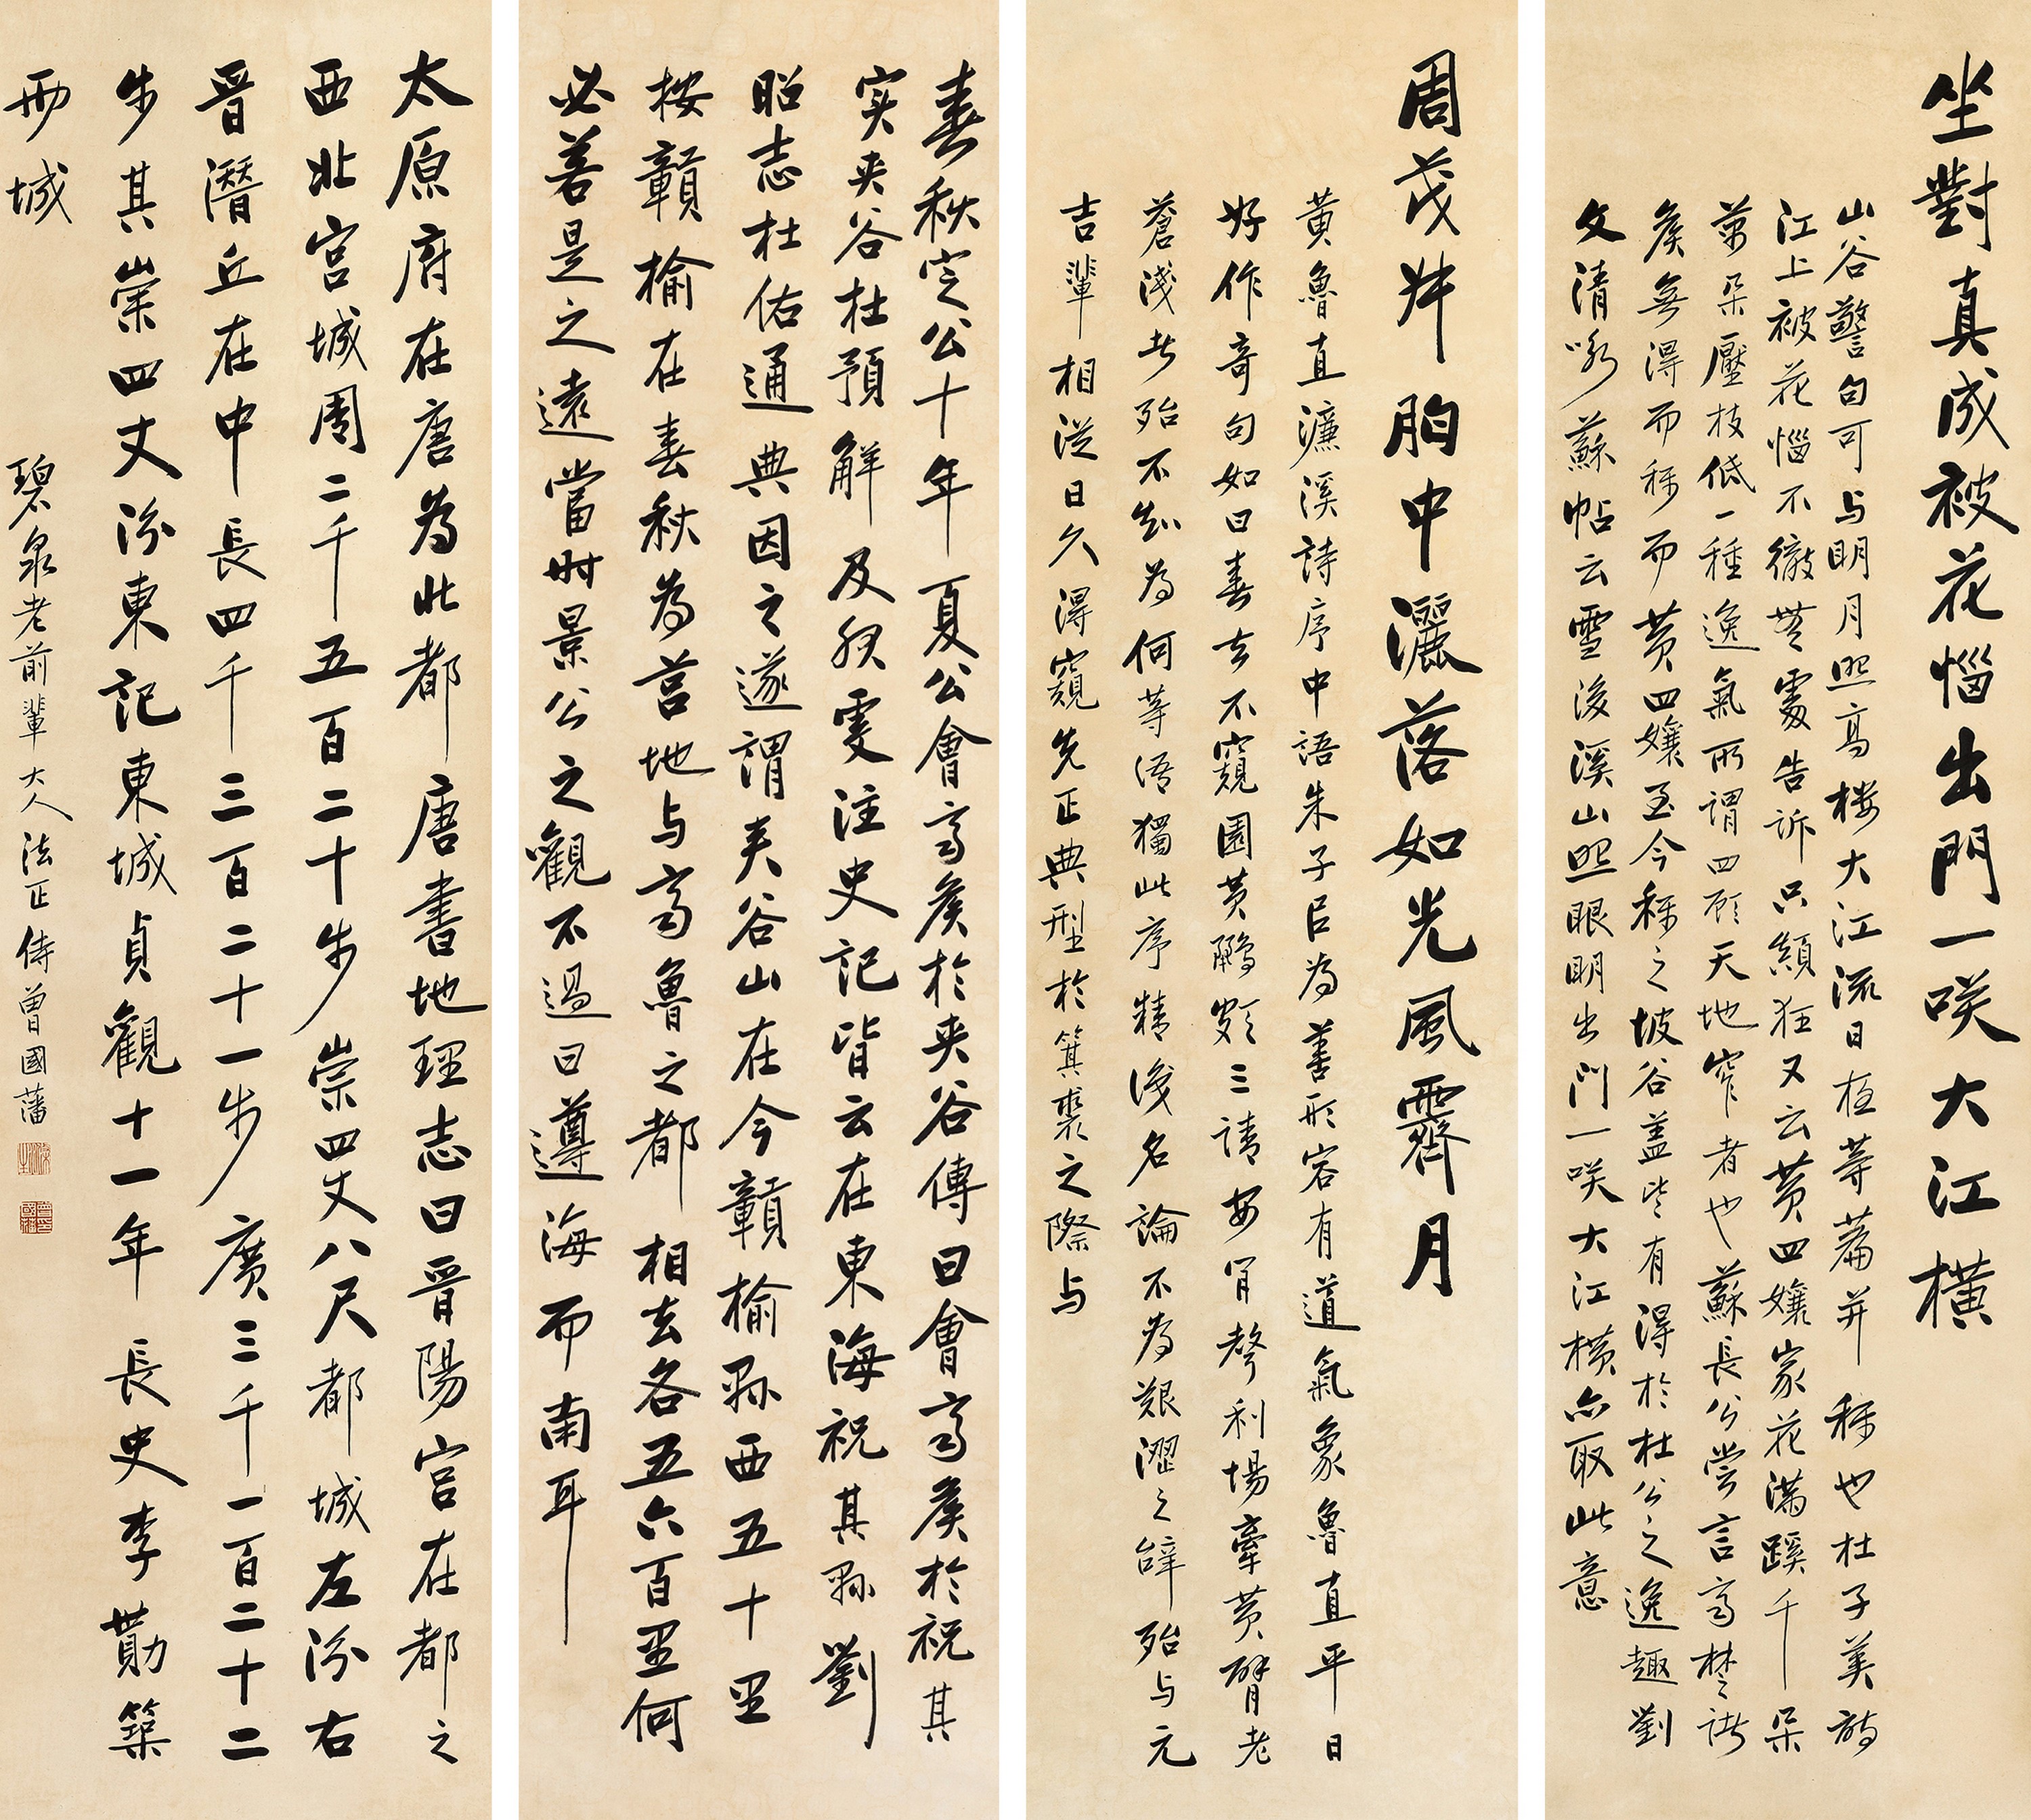 坐對真成被花惱出門一咲大江橫
山谷警句可与明月照高樓大江流日夜等篇并稱也杜子美詩
江上被花惱不徹無處告訴只顛狂又云黄四孃家花滿蹊千朵
萬朵壓枝低一種逸氣所謂四顧天地窄者也蘇長公嘗言齊楚諸
侯無得而稱而黄四孃至今稱之坡谷蓋皆有得於杜公之逸趣劉
文清嘗書蘇帖云雪後溪山照眼明出門一咲大江橫亦取此意
周茂叔胸中灑落如光風霽月
黄魯直濂溪詩序中語朱子以為善形容有道氣象魯直平日
好作奇句如曰春去不窺園黄鸝頗三請安肎聲利場牽黄臂老
蒼淺者殆不知為何等語獨此序精淺名論不為艱澀之辭殆与元
吉輩相從日久得窺先正典型於箕裘之際与
春秋定公十年夏公會齊矦於夾谷傳曰會齊矦於祝其
实夾谷杜預解及服虔注史記皆云在東海祝其縣劉
昭志杜佑通典因之遂謂夾谷山在今贛榆縣西五十里
按贛榆在春秋為莒地与齊魯之都相去各五六百里何
必若是之遠當時景公之觀不過曰遵海而南耳
太原府在唐為北都唐書地理志曰晉陽宫在都之
西北宫城周二千五百二十步崇四丈八尺都城左汾右
晉潛丘在中長四千三百二十一步廣三千一百二十二
步其崇四丈汾東記東城貞觀十一年長史李勣築
兩城
碧泉老前輩大人法正侍曾國藩